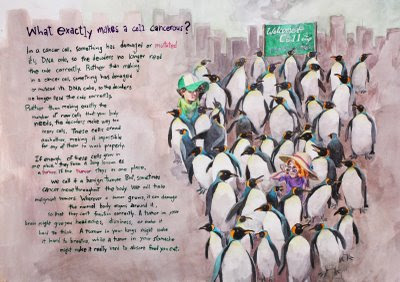 What exactly makes a cell cancerous?
In a cancer cell, something has damaged or mutated
its DNA code, so the decoders no longer read
the code correctly. Rather than making
in a cancer cell, something has damaged
or mutated its DNA code, so the decoders
no longer read the code correctly.
Rather than making exactly the
number of new cells that your body
needs, the decoders make way too
many cells. These cells crowd
each other, making it impossible
for any of them to work properly.
If enough of these cells grow in
one place, they form a
a tumor. If the tumor stays in one place,
we call it a benign tumor. But, sometimes
cancer moves throughout the body. We call these
malignant tumors. Wherever a tumor grows, it can damage
the normal body organs around it,
so that they can't function correctly. A tumor in your
brain might give you headaches, dizziness, or make it
hard to think. A tumor in your lungs might make
it hard to breathe while a tumor in your stomach
might make it really hard to digest food you eat.
Welcome to
Cell City